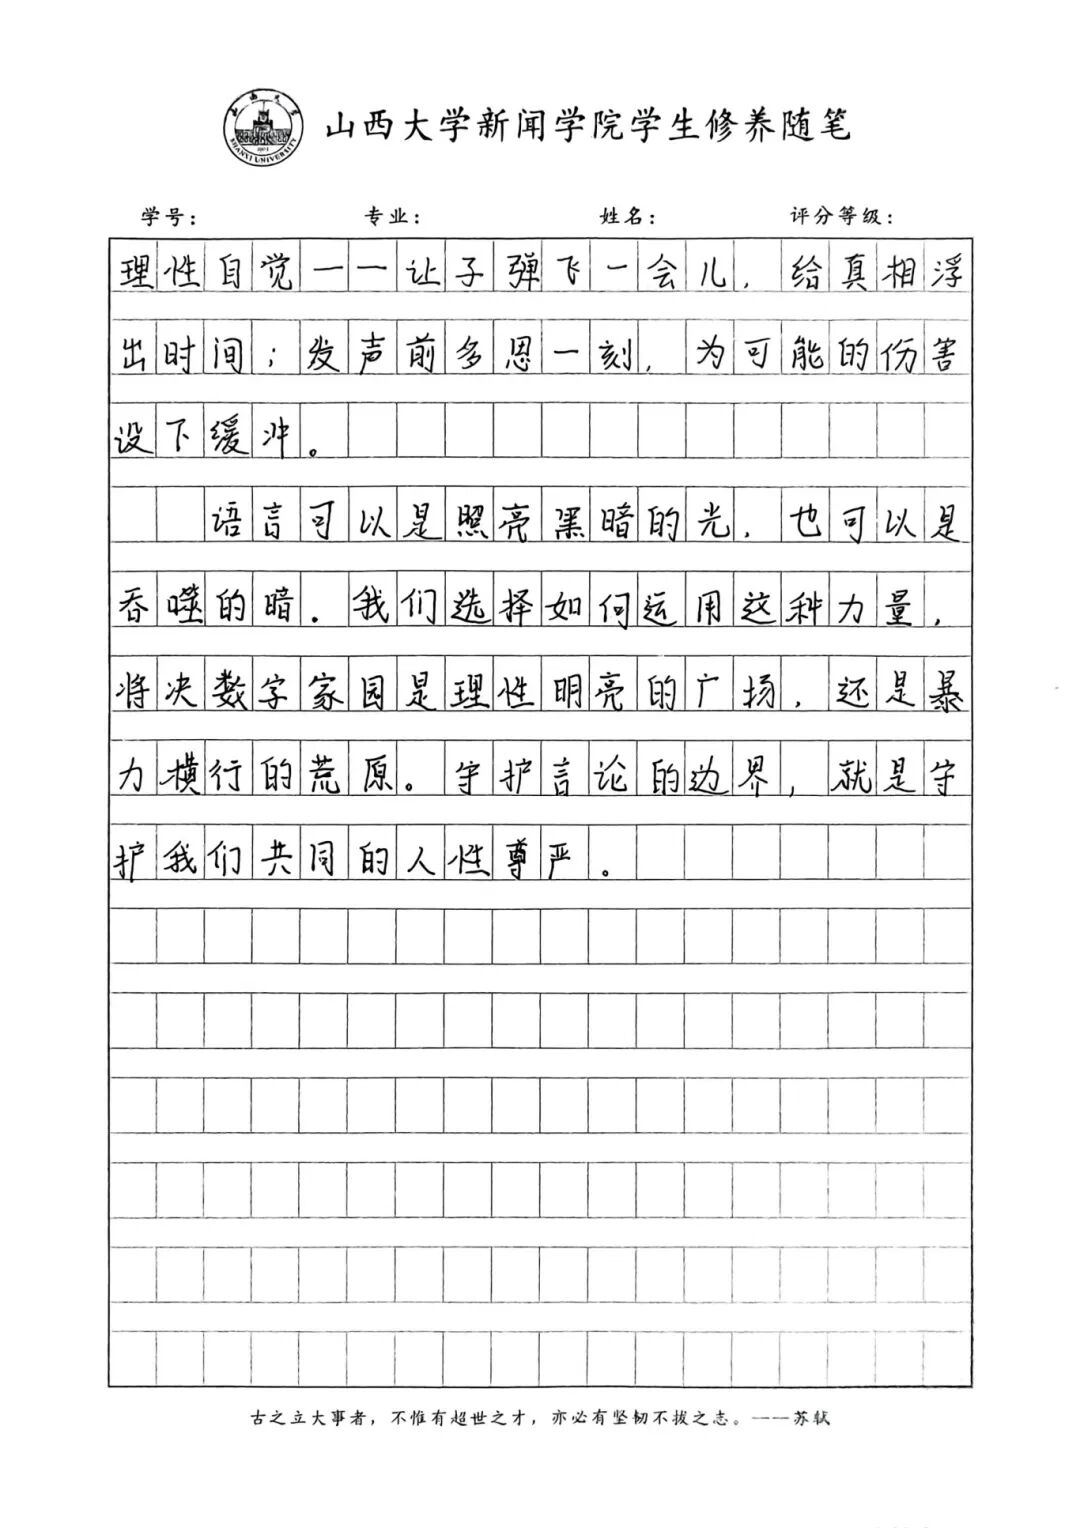 山西大学
SHANXI UNIVERSITY
1902
山西大学新闻学院学生修养随笔
学号： 专业： 姓名： 评分等级：
理性自觉——让子弹飞一会儿，给真相浮
出时间；发声前多思一刻，为可能的伤害
设下缓冲。
语言可以是照亮黑暗的光，也可以是
吞噬的暗．我们选择如何运用这种力量，
将决数字家园是理性明亮的广场，还是暴
力横行的荒原。守护言论的边界，就是守
护我们共同的人性尊严。
古之立大事者，不惟有超世之才，亦必有坚韧不拔之志。——苏轼